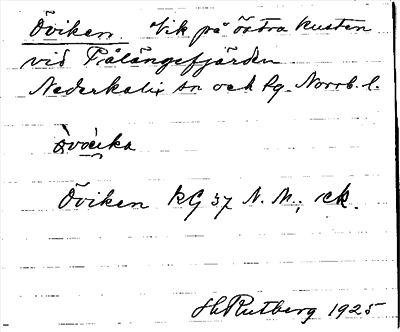 Öviken. Vik på östra kusten
vid Pålängefjärden
Nederkalix sn och tg. Norrb. l.
Öviken kG 37 N. M.; ek.
H Rutberg 1925